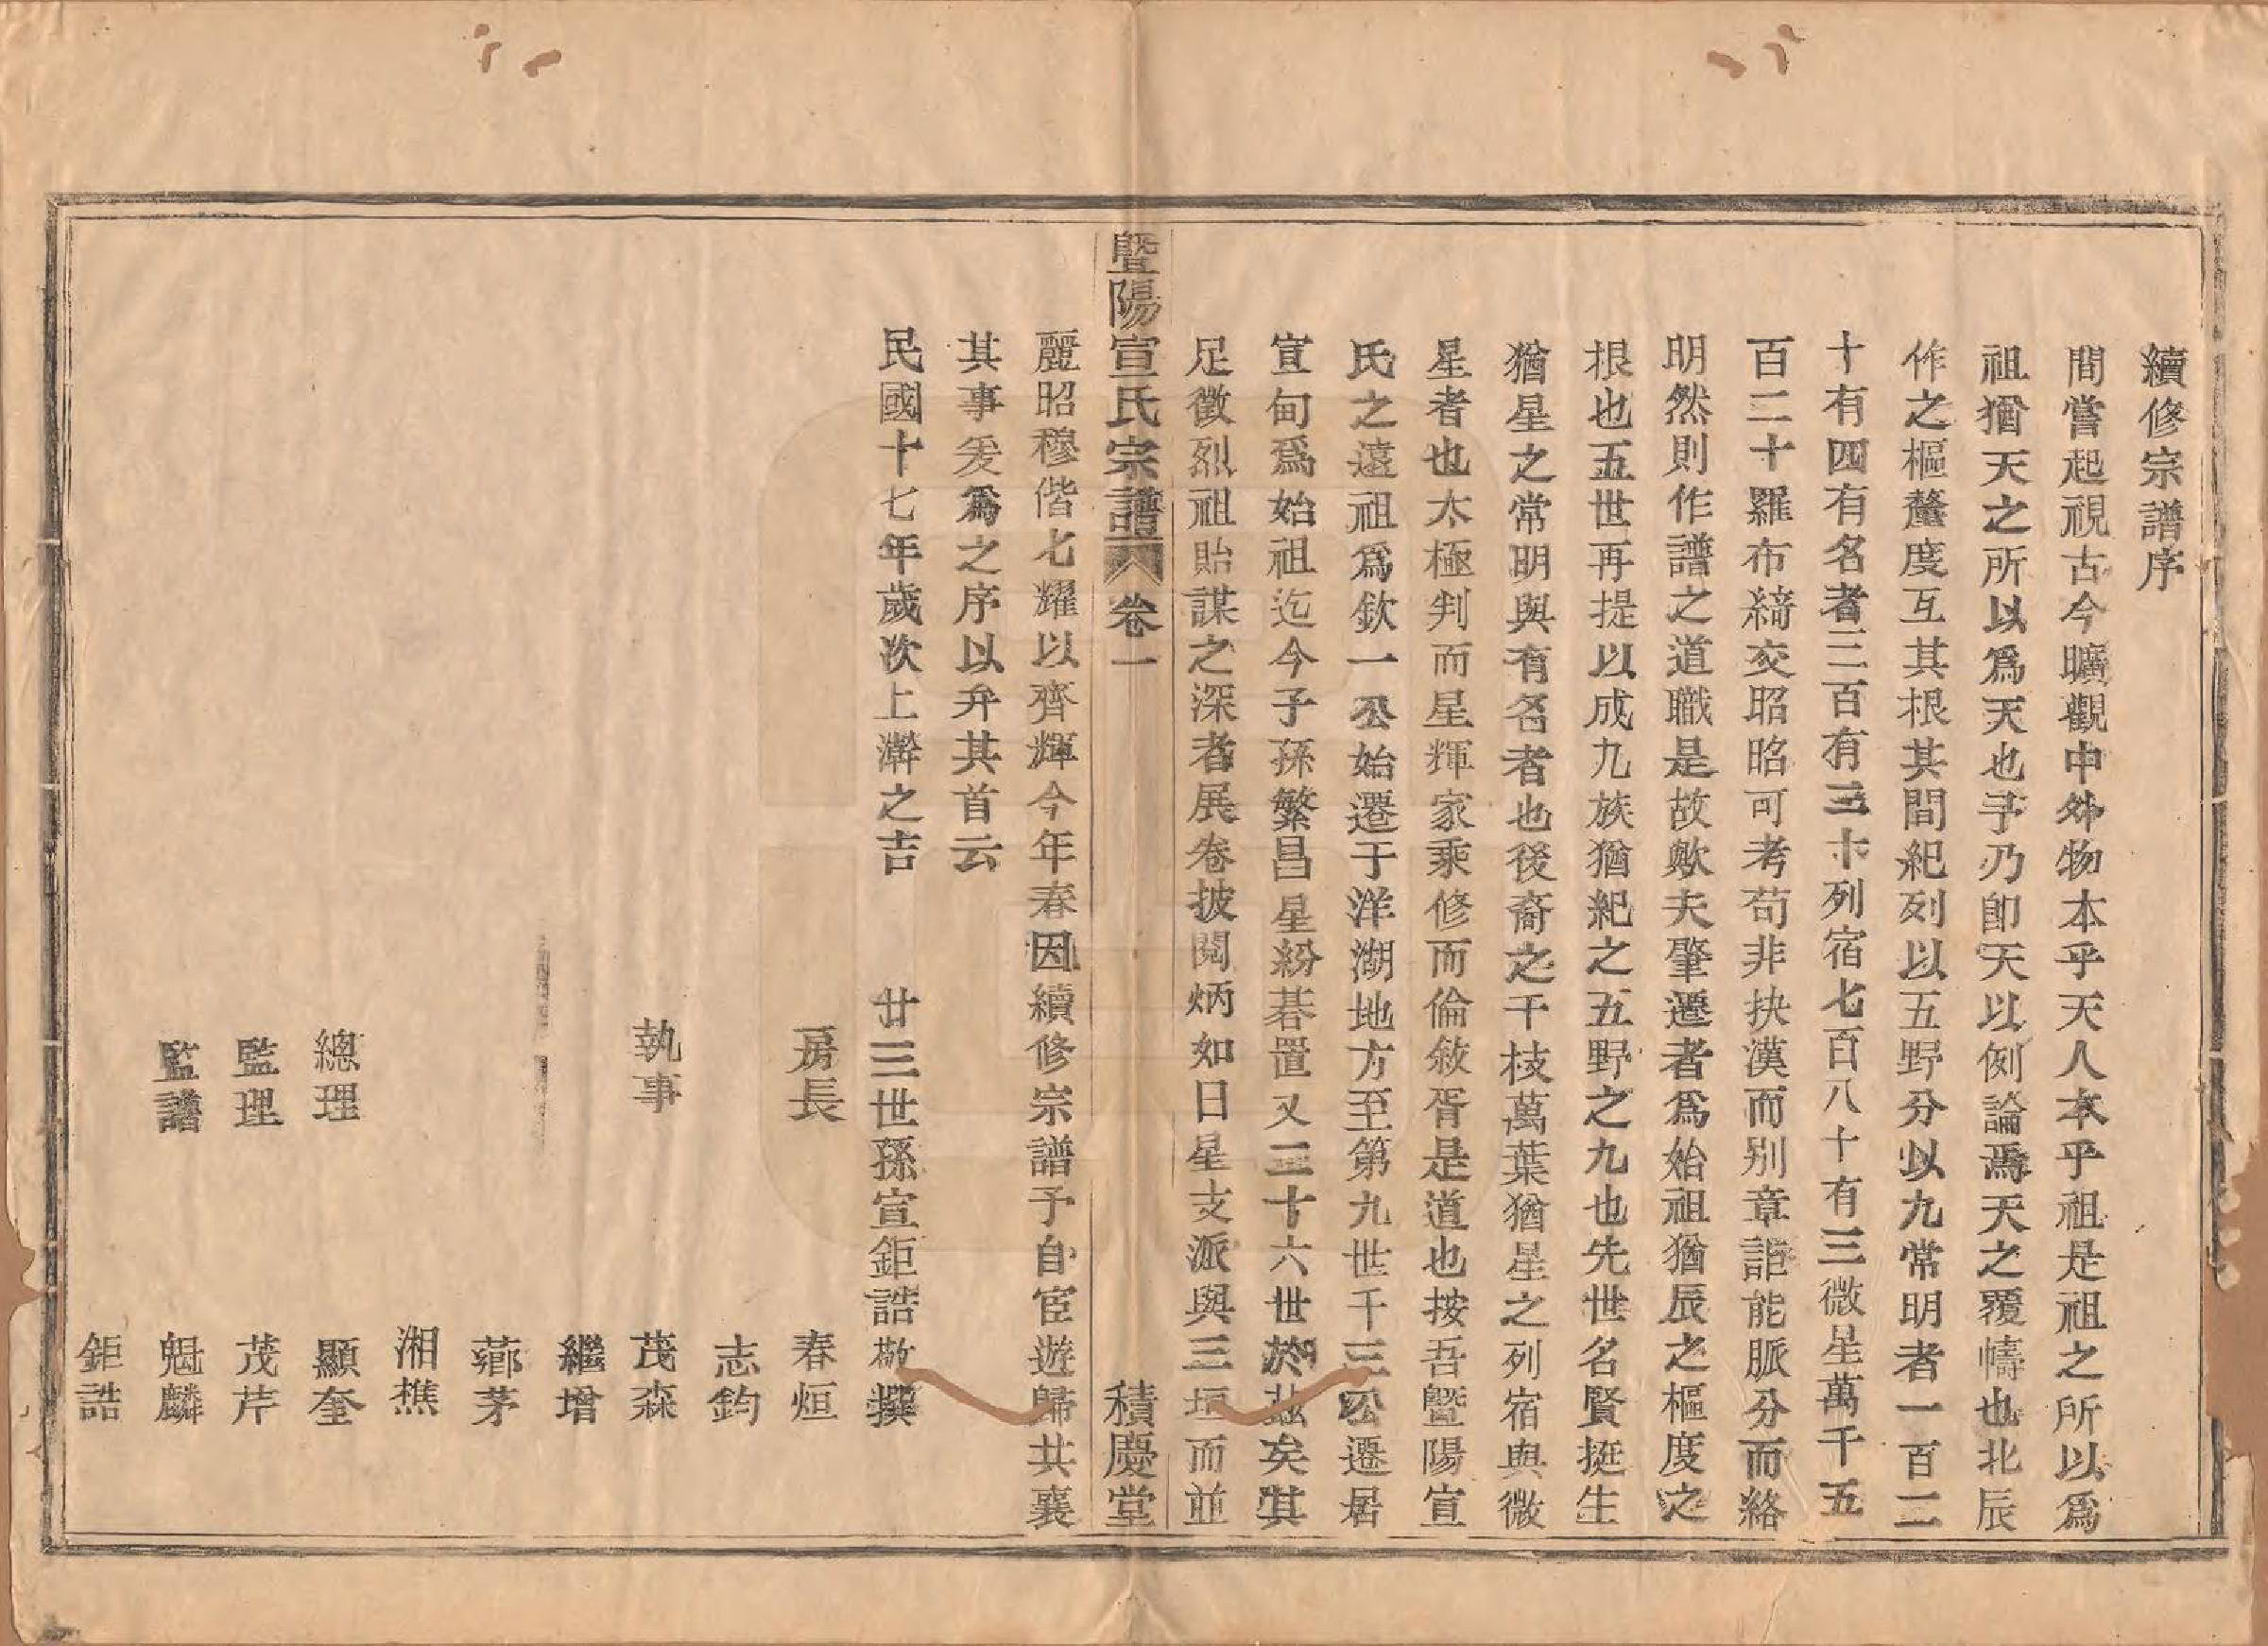 續修宗譜序
間嘗起視古今曠觀中外物本乎天人本乎祖是祖之所以爲
祖猶天之所以爲天也予乃卽天以例論焉天之覆幬也北辰
作之樞釐度互其根其間紀列以五野分以九常明者一百二
十有四有名者三百有三十列宿七百八十有三微星萬千五
百二十羅布綺交昭昭可考苟非抉漢而别章詎能脈分而絡
明然則作譜之道職是故歟夫肇遷者爲始祖猶辰之樞度之
根也五世再提以成九族猶紀之五野之九也先世名賢挺生
猶星之常明與有名者也後裔之干枝萬葉猶星之列宿與微
星者也太極判而星輝家乘修而倫敘胥是道也按吾暨陽宣
氏之遠祖爲欽一公始遷于洋湖地方至第九世千三公遷居
宣甸爲始祖迄今子孫繁昌星紛碁置又二十六世於茲矣其
足徵烈祖貽謀之深者展卷披閱炳如日星支派與三垣而並
暨陽宣氏宗譜 卷一 積慶堂
麗昭穆偕七耀以齊輝今年春因續修宗譜予自宦遊歸共襄
其事爰爲之序以弁其首云
民國十七年歲次上澣之吉 廿三世孫宣鉅誥敬撰
房長 春烜
志鈞
執事 茂森
繼增
薌茅
湘樵
總理 顯奎
監理 茂芹
監譜 魁麟
鉅誥